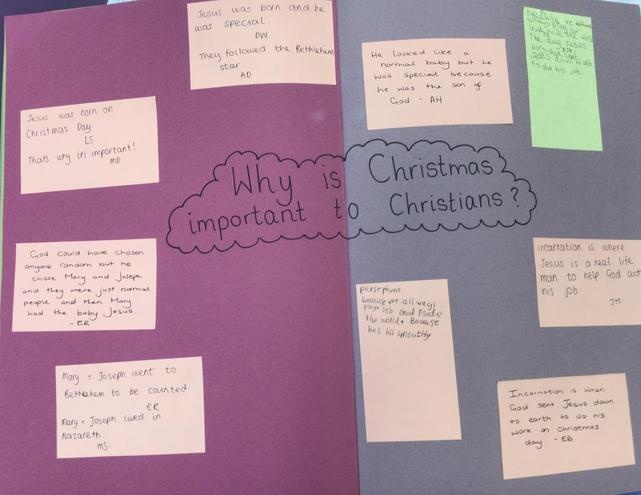 Jesus was born and he
was special.
DW
They followed the Bethlehem
star.
AD
He looked like a
normal baby but he
was special because
he was the son of
God - AH
Jesus was born on
Christmas Day
LS
That's why it's important!
MD
Why is Christmas
important to Christians?
God could have chosen
anyone random but he
chose Mary and Joseph
and they were just normal
people and then Mary
had the baby Jesus.
- ER
Mary + Joseph went to
Bethlehem to be counted.
ER
Mary + Joseph lived in
Nazareth.
MS
incarnation is where
Jesus is a real life
man to help God out
his job
JM
persephone
because we all ways
God made
the world
his
Incarnation is when
God sent Jesus down
to earth to do his
work on Christmas
day - EB
because we
The day Jesus
to do his job